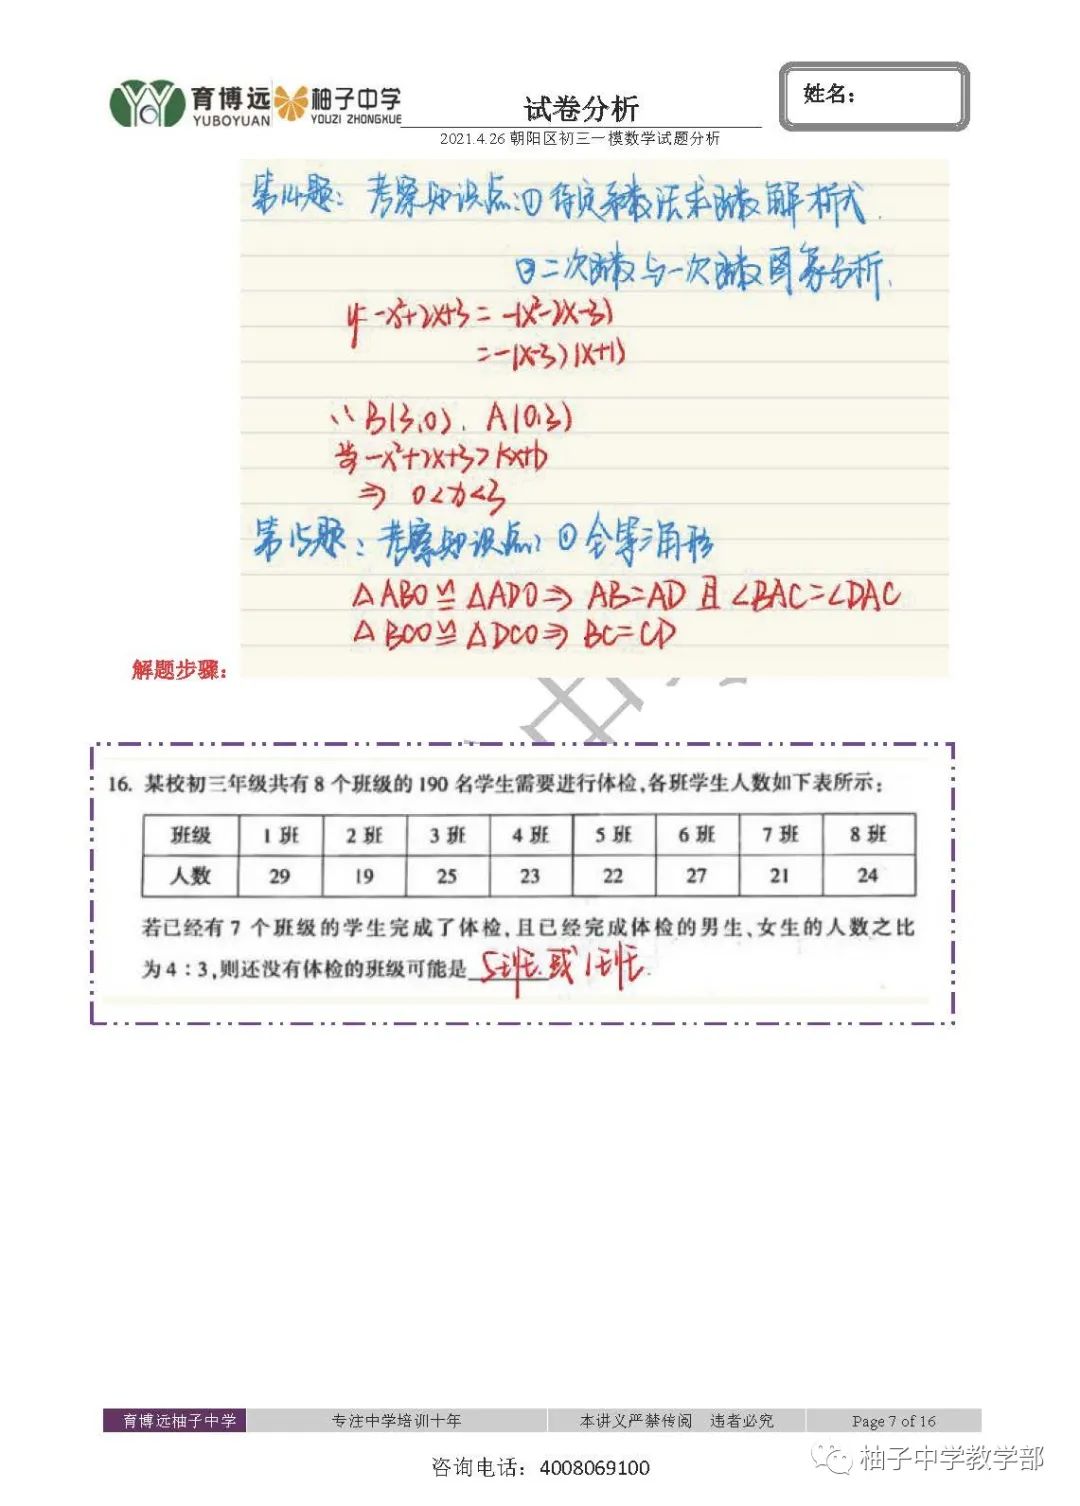 育博远 柚子中学
YUBOYUAN YOUZI ZHONGXUE
试卷分析
姓名：
2021.4.26 朝阳区初三一模数学试题分析
第14题：考察知识点：① 待定系数法求函数解析式.
② 二次函数与一次函数图象分析.
y=-x²+2x+3=-(x²-2x-3)
=-(x-3)(x+1)
∴ B(3,0). A(0,3)
当-x²+2x+3>kx+b
⇒ 0<x<3
第15题：考察知识点：① 全等三角形
△ABO≌△ADO⇒ AB=AD 且∠BAC=∠DAC
△BCO≌△DCO⇒ BC=CD
解题步骤：
16. 某校初三年级共有 8 个班级的 190 名学生需要进行体检，各班学生人数如下表所示：
班级 1 班 2 班 3 班 4 班 5 班 6 班 7 班 8 班
人数 29 19 25 23 22 27 21 24
若已经有 7 个班级的学生完成了体检，且已经完成体检的男生、女生的人数之比
为 4：3，则还没有体检的班级可能是 5班.或 1班.
育博远柚子中学 专注中学培训十年 本讲义严禁传阅 违者必究 Page 7 of 16
咨询电话：4008069100
柚子中学教学部